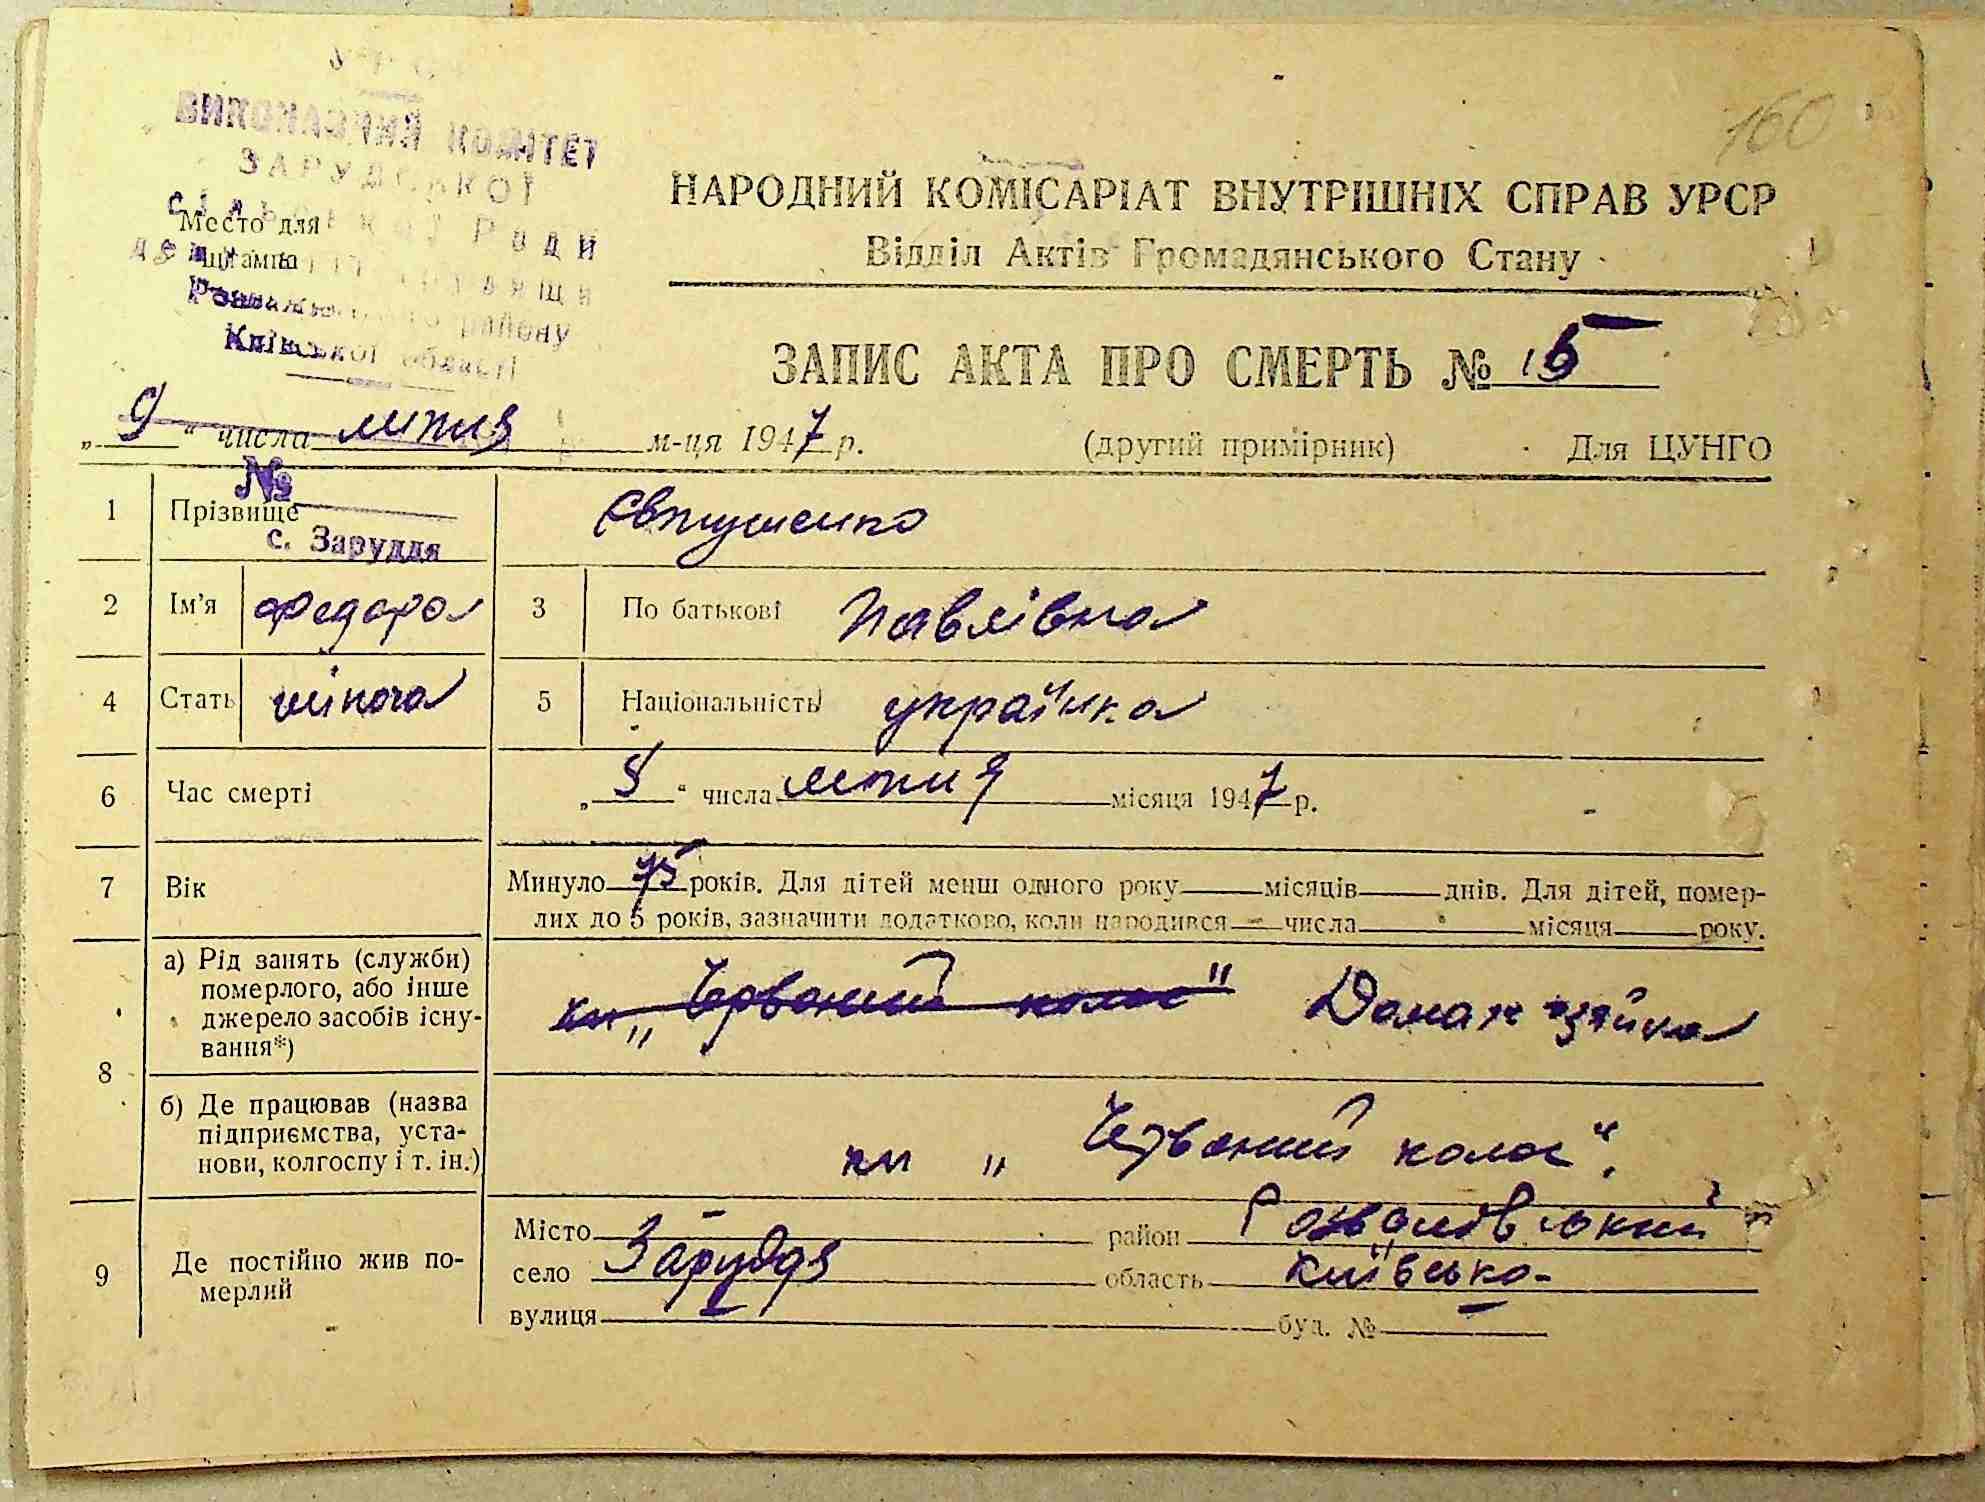 160
УРСР
ВИКОНАВЧИЙ КОМІТЕТ
ЗАРУДСЬКОЇ
сільської Ради
депутатів трудящих
Розважівського району
Київської області
Место для
штампа
НАРОДНИЙ КОМІСАРІАТ ВНУТРІШНІХ СПРАВ УРСР
Відділ Актів Громадянського Стану
ЗАПИС АКТА ПРО СМЕРТЬ № 15
„ 9 “ числа липня м-ця 1947 р. (другий примірник) Для ЦУНГО
№
с. Заруддя
1 Прізвище Євтушенко
2 Ім'я Федора 3 По батькові Павлівна
4 Стать жіноча 5 Національність українка
6 Час смерті „ 8 “ числа липня місяця 1947 р.
7 Вік Минуло 75 років. Для дітей менш одного року місяців днів. Для дітей, помер-
лих до 5 років, зазначити додатково, коли народився — числа місяця року.
8 а) Рід занять (служби)
померлого, або інше
джерело засобів існу-
вання*)
„Червоний колос“ Домаш
б) Де працював (назва
підприємства, уста-
нови, колгоспу і т. ін.)
„Червоний колос“.
9 Де постійно жив по-
мерлий
Місто — район Розважівський
село Заруддя область Київська
вулиця — буд. № —